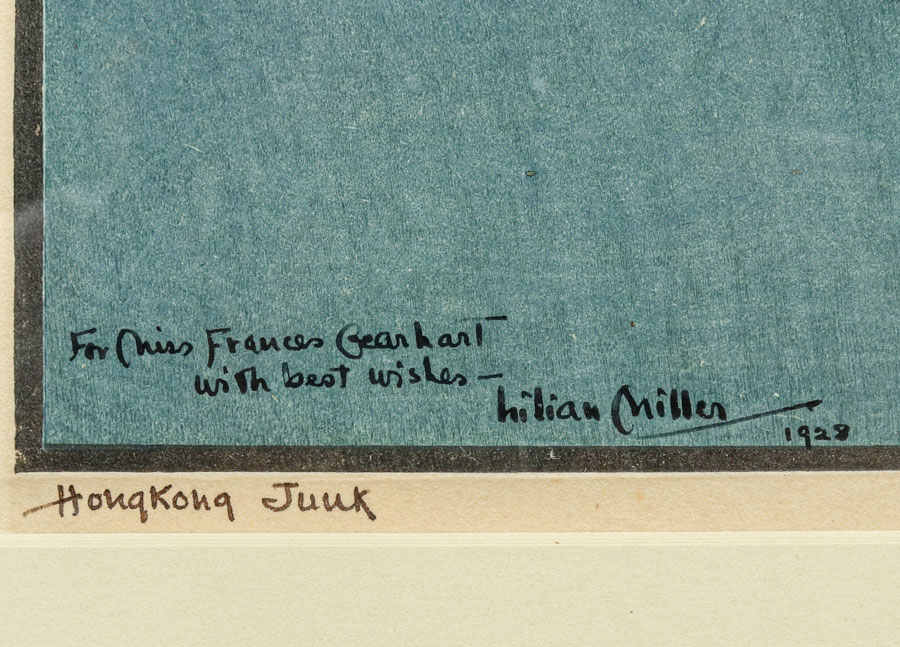 For Miss Frances Gearhart
with best wishes —
Lilian Miller
1928
HongKong Junk